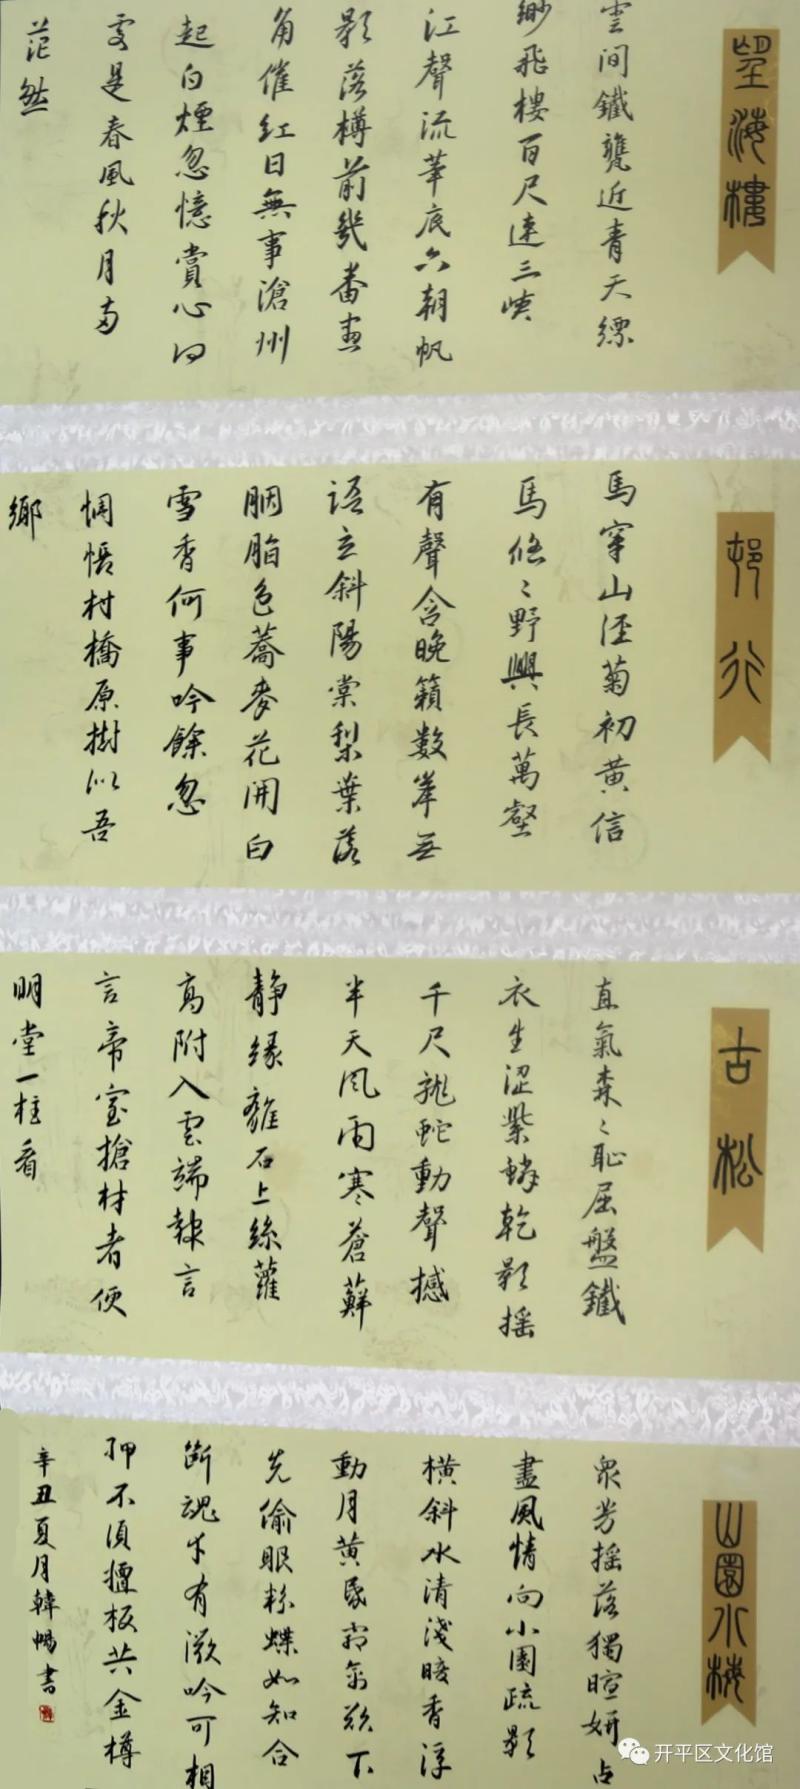 望海樓
雲間鐵甕近青天縹
緲飛樓百尺連三峽
江聲流筆底六朝帆
影落樽前幾番畫
角催紅日無事滄州
起白煙忽憶賞心何
處是春風秋月兩
茫然
邨行
馬穿山徑菊初黃信
馬悠〻野興長萬壑
有聲含晚籟數峯無
語立斜陽棠梨葉落
胭脂色蕎麥花開白
雪香何事吟餘忽
惆悵村橋原樹似吾
鄉
古松
直氣森〻恥屈盤鐵
衣生澀紫鱗乾影搖
千尺龍蛇動聲撼
半天風雨寒蒼蘚
靜緣離石上絲蘿
高附入雲端報言
言帝室搶材者便
明堂一柱看
山園小梅
眾芳搖落獨暄妍占
盡風情向小園疏影
橫斜水清淺暗香浮
動月黃昏霜禽欲下
先偷眼粉蝶如知合
斷魂幸有微吟可相
狎不須檀板共金樽
辛丑夏月韓暢書
开平区文化馆